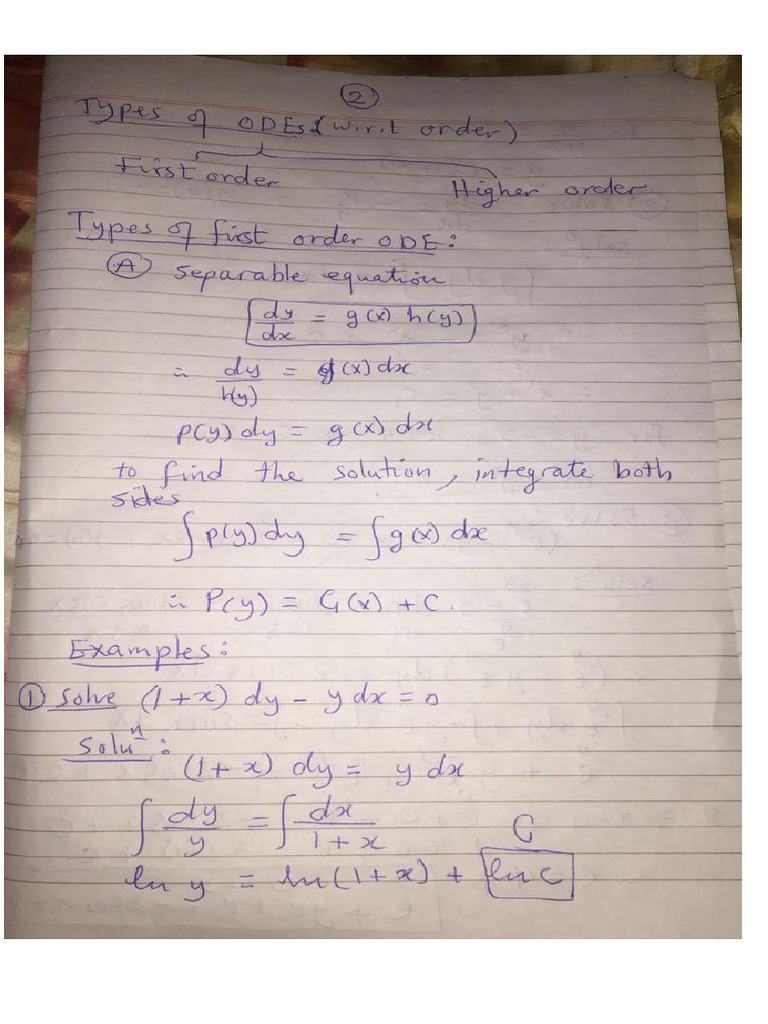 ②
Types of ODEs (w.r.t order)
First order
Higher order
Types of first order ODE:
Ⓐ Separable equation
dy/dx = g(x) h(y)
∴ dy/h(y) = g(x) dx
p(y) dy = g(x) dx
to find the solution, integrate both
sides
∫ p(y) dy = ∫ g(x) dx
∴ P(y) = G(x) + C.
Examples:
① Solve (1+x) dy - y dx = 0
Soluⁿ:
(1+x) dy = y dx
∫ dy/y = ∫ dx/1+x
C
ln y = ln(1+x) + ln C